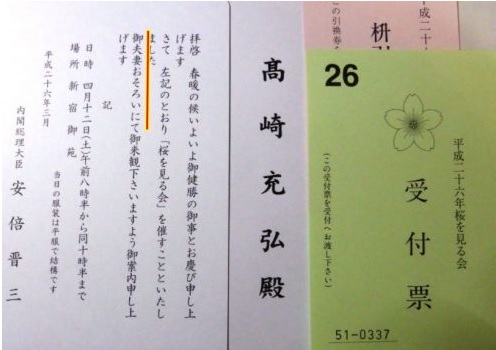 平成二十
枡引
この引換券
26
平成二十六年桜を見る会
受付票
(この受付票を受付へお渡し下さい)
51-0337
髙崎充弘殿
拝啓 春暖の候いよいよ御健勝の御事とお慶び申し上
げます
さて 左記のとおり「桜を見る会」を催すことといたし
ました
御夫妻おそろいにて御来観下さいますよう御案内申し上
げます
記
日時 四月十二日(土)午前八時半から同十時半まで
場所 新宿御苑
当日の服装は平服で結構です
平成二十六年三月
内閣総理大臣 安倍晋三